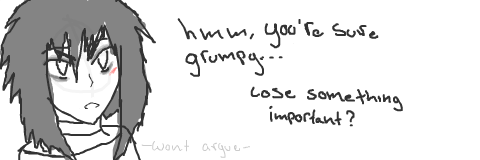 hmm, you're sure
grumpy...
Lose something
important?
-wont argue-